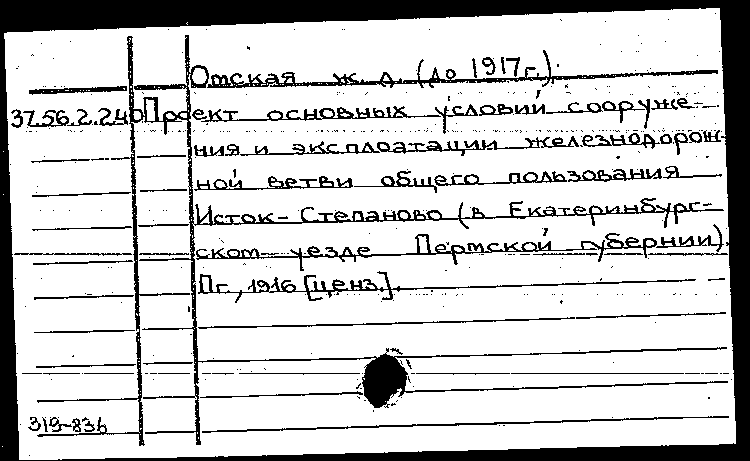 Омская ж. д. (до 1917 г.).
37.56.2.240 Проект основных условий сооруже-
ния и эксплоатации железнодорож-
ной ветви общего пользования
Исток - Степаново (в Екатеринбург-
ском уезде Пермской губернии).
Пг., 1916 [ценз.].
319-836